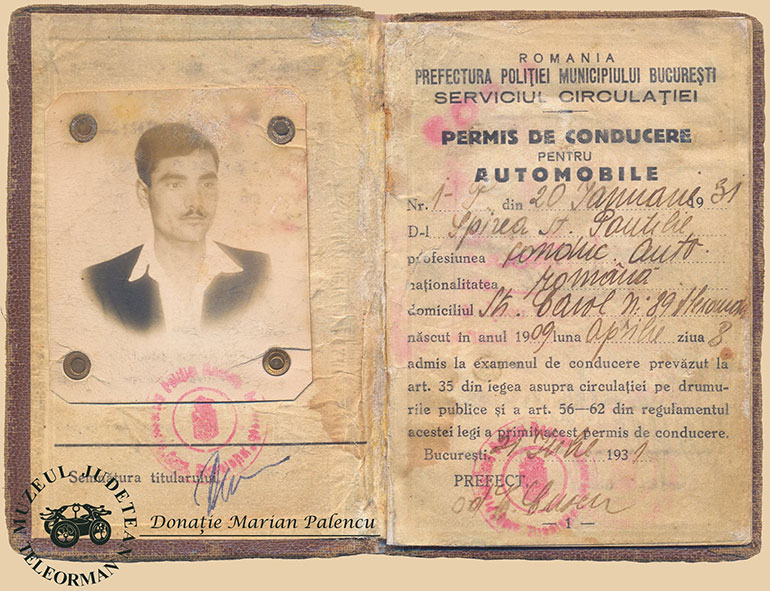 Semnătura titularului
MUZEUL JUDEȚEAN
TELEORMAN
Donație Marian Palencu
ROMANIA
PREFECTURA POLIȚIEI MUNICIPIULUI BUCUREȘTI
SERVICIUL CIRCULAȚIEI
PERMIS DE CONDUCERE
PENTRU
AUTOMOBILE
Nr. 1- din 20 Ianuarie 1931
D-l Spirea St. Pantelie
profesiunea conduc. auto.
naționalitatea română
domiciliul Str. Carol N: 89
născut în anul 1909 luna Aprilie ziua 8
admis la examenul de conducere prevăzut la
art. 35 din legea asupra circulației pe drumu-
rile publice și a art. 56—62 din regulamentul
acestei legi a primit acest permis de conducere.
București, 1931
PREFECT,
— 1 —